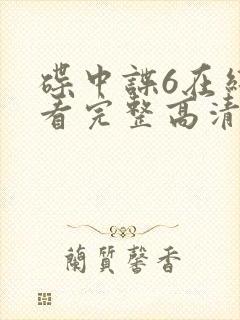 碟中諜6在線
看完整高清
蘭質馨香